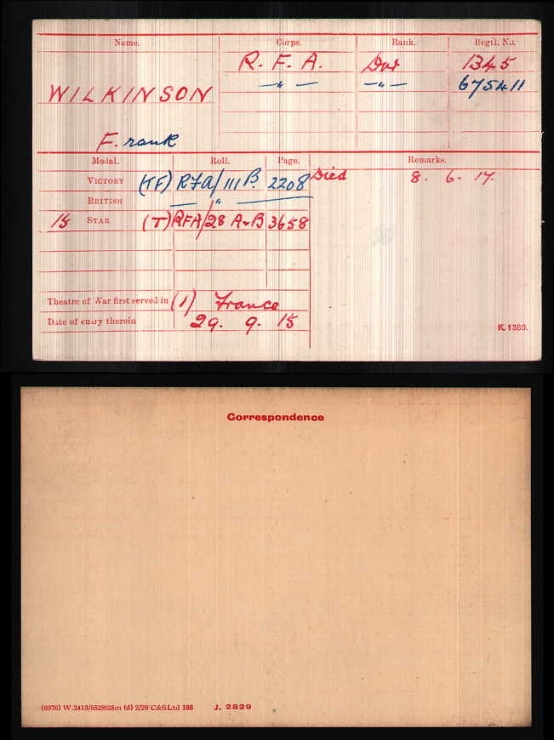 Name. Corps. Rank. Regtl. No.
R. F. A. Dvr 1345
WILKINSON —"— —"— 675411
F.rank
Medal. Roll. Page. Remarks.
VICTORY (TF) RFA/111 B. 2208 Died 8. 6. 17.
BRITISH — " —
15 STAR (T) RFA/28 A-B 3658
Theatre of War first served in (1) France
Date of entry therein 29. 9. 15
K. 1380.
Correspondence
(6376) W.2413/5528125m (5) 2/29 C&SLtd 166 J. 2829